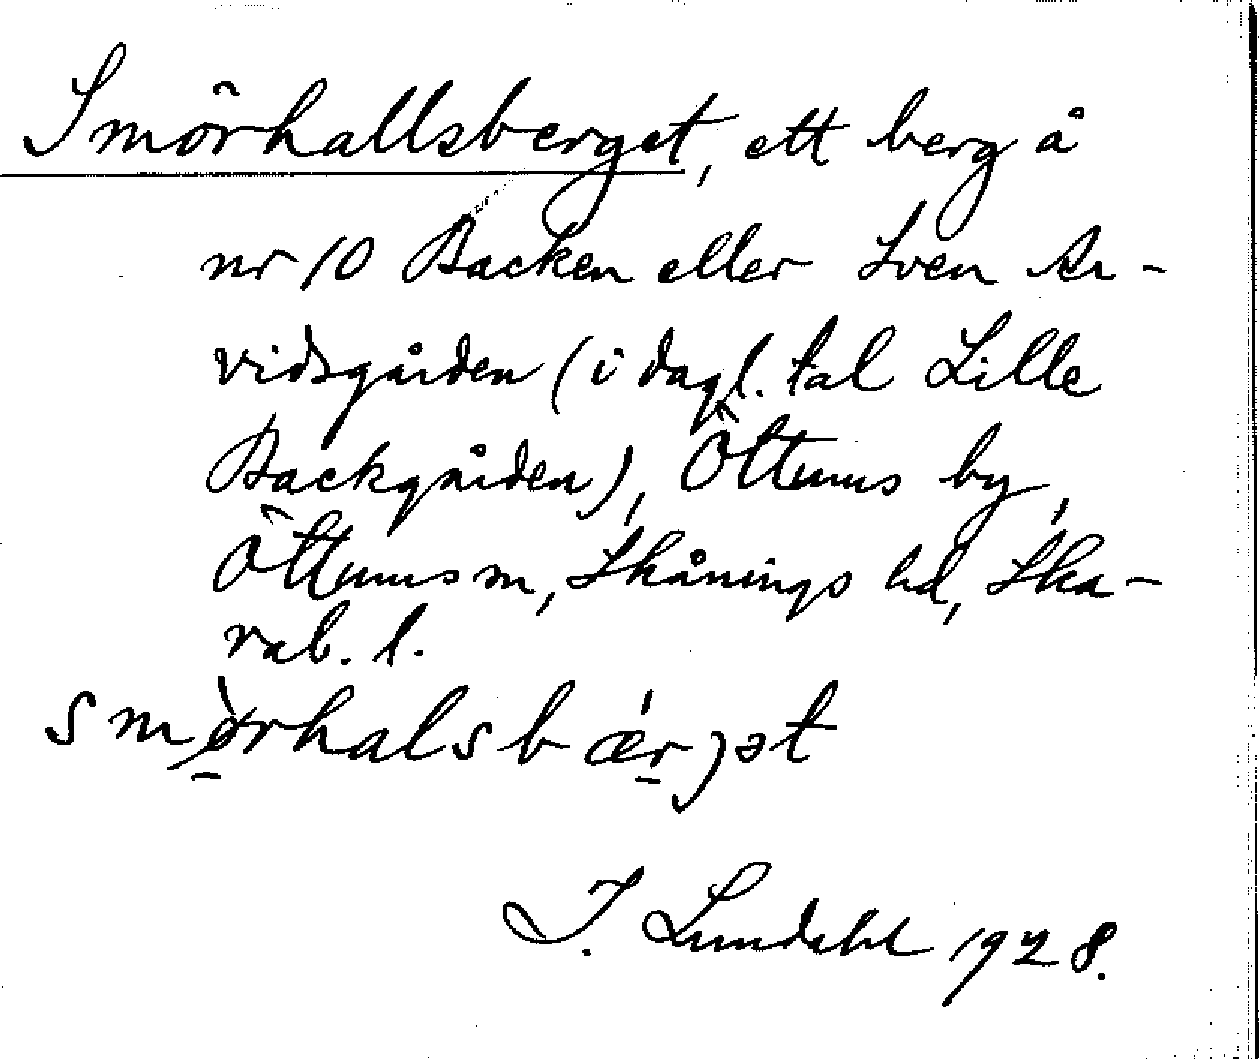 Smörhallsberget, ett berg å
nr 10 Backen eller Sven Ar-
vidsgården (i dagl. tal Lille
Backgården), Öttums by,
Öttums sn, Skånings hd, Ska-
rab. l.
smørhalsbærjət
I. Lundahl 1928.